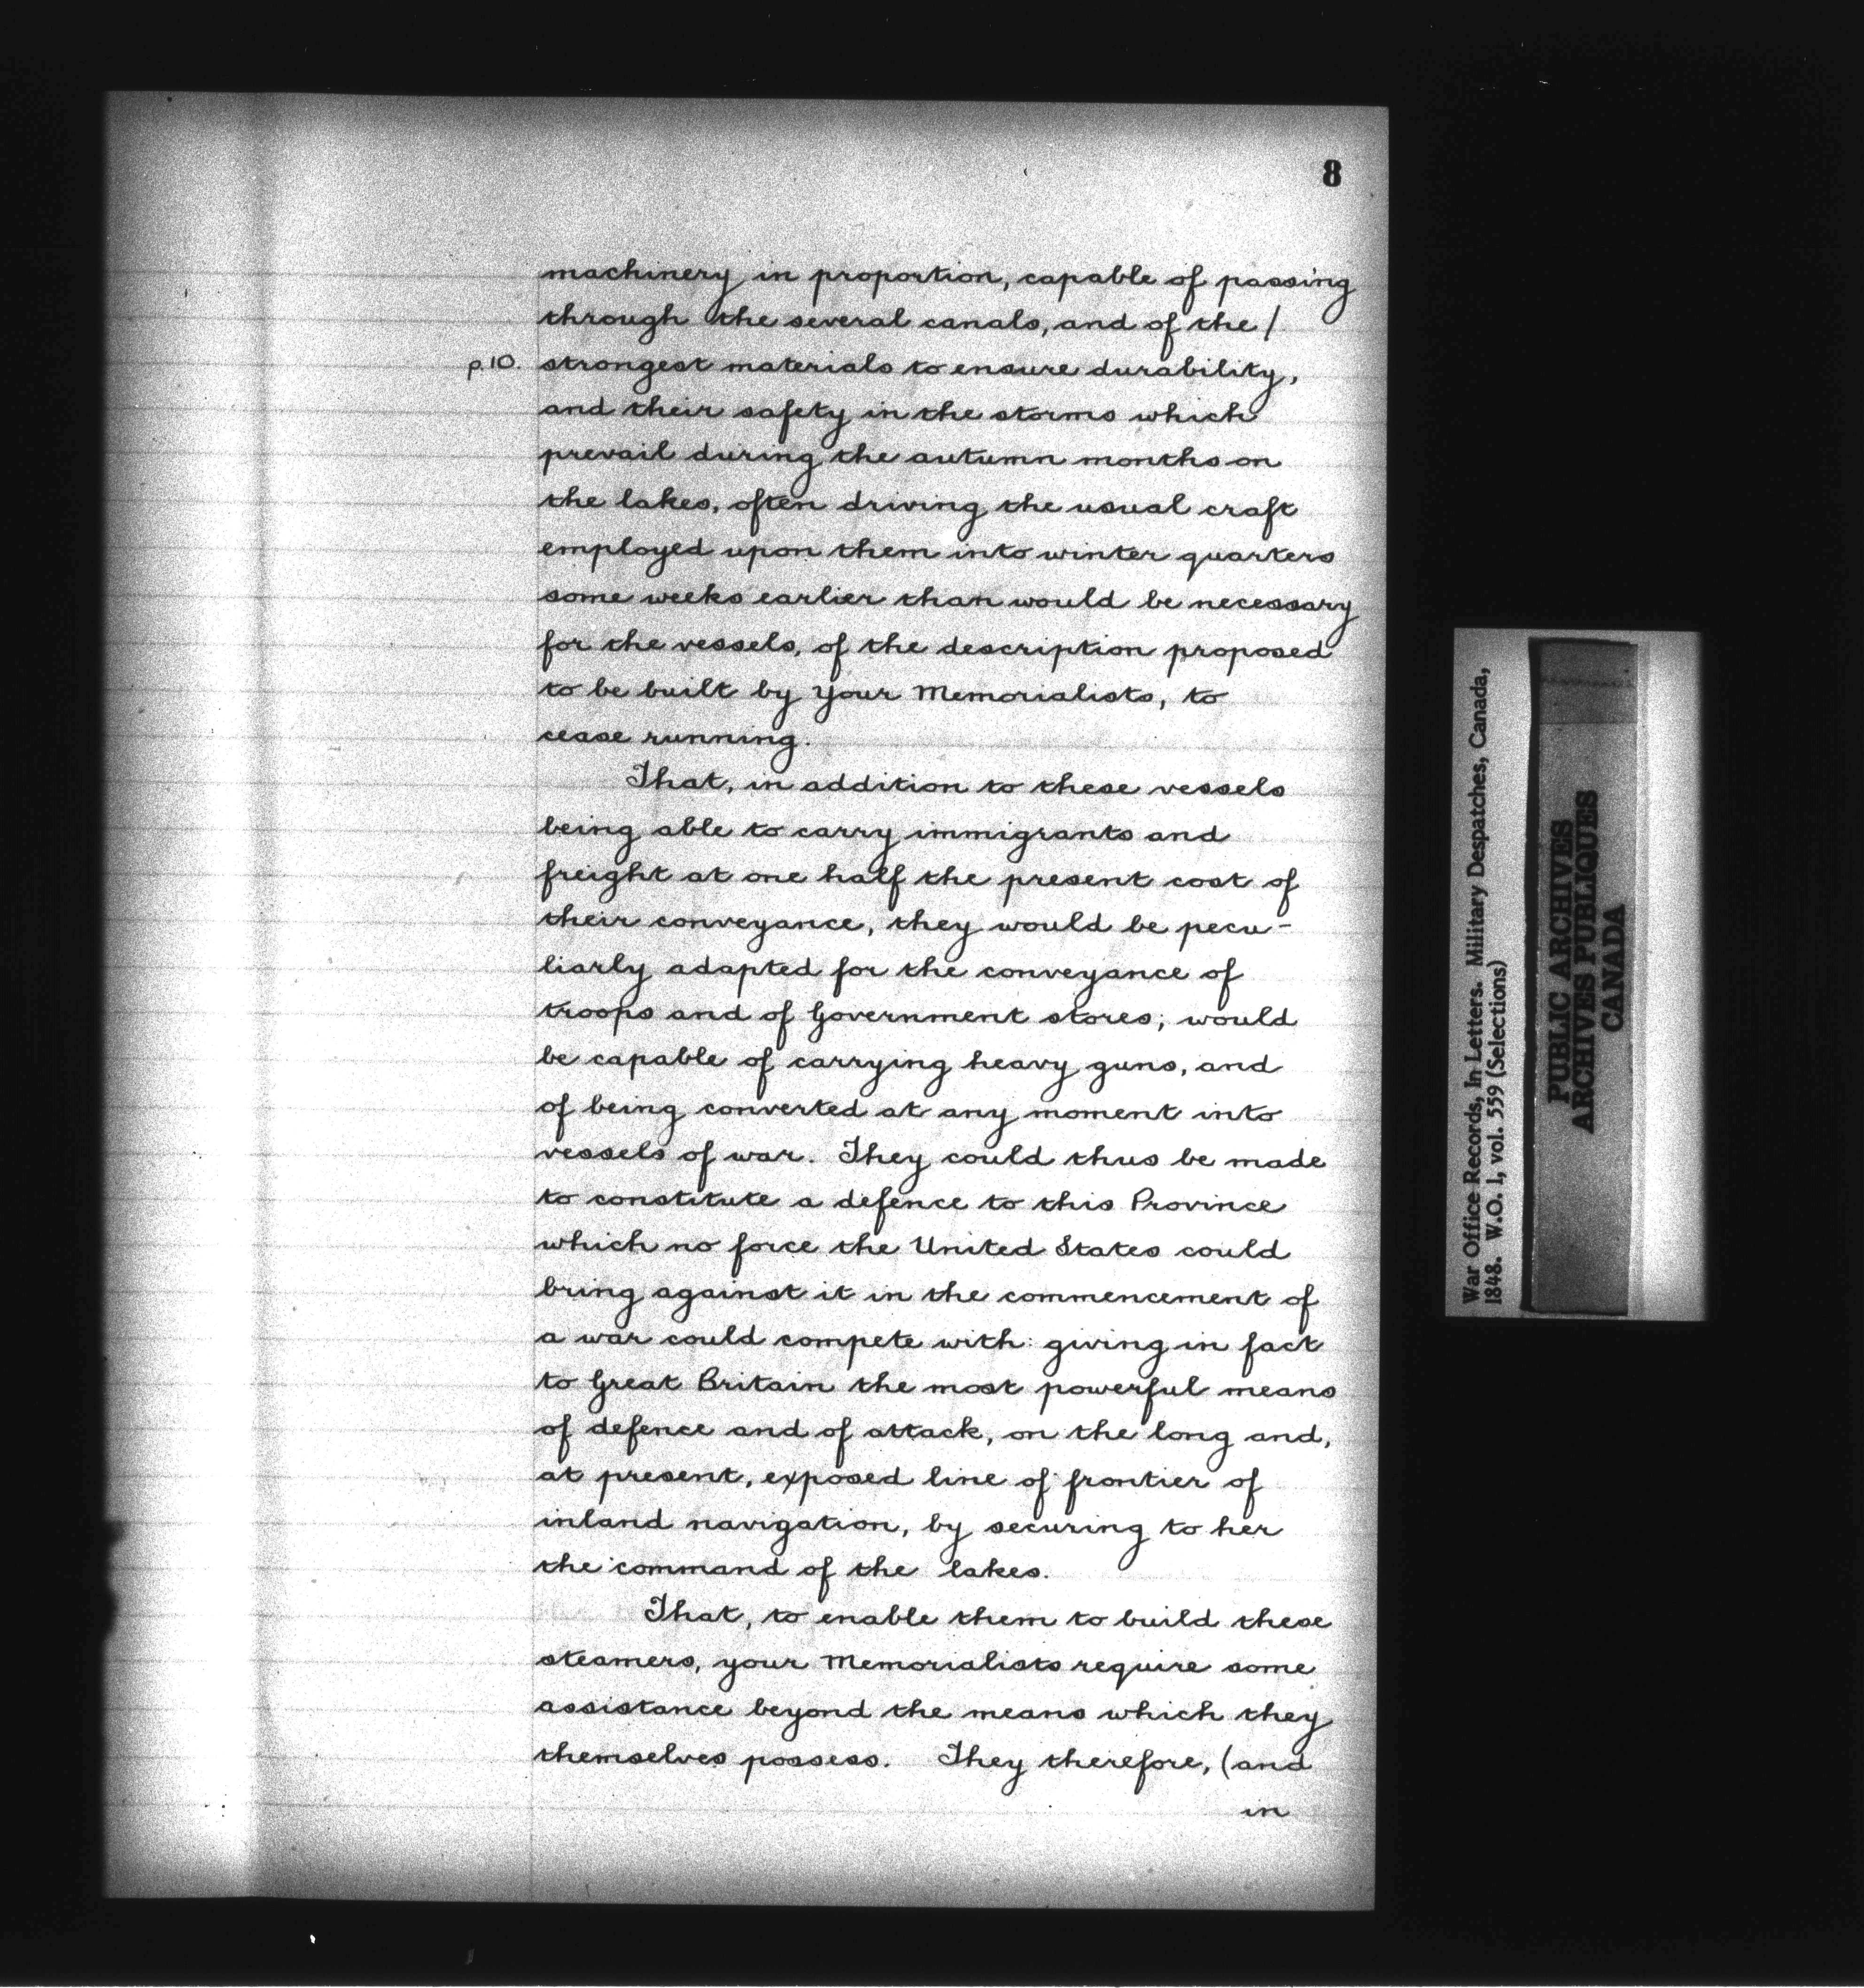 8
machinery in proportion, capable of passing
through the several canals, and of the /
p.10. strongest materials to ensure durability,
and their safety in the storms which
prevail during the autumn months on
the lakes, often driving the usual craft
employed upon them into winter quarters
some weeks earlier than would be necessary
for the vessels, of the description proposed
to be built by your Memorialists, to
cease running.
That, in addition to these vessels
being able to carry immigrants and
freight at one half the present cost of
their conveyance, they would be pecu-
liarly adapted for the conveyance of
troops and of Government stores; would
be capable of carrying heavy guns, and
of being converted at any moment into
vessels of war. They could thus be made
to constitute a defence to this Province
which no force the United States could
bring against it in the commencement of
a war could compete with: giving in fact
to Great Britain the most powerful means
of defence and of attack, on the long and,
at present, exposed line of frontier of
inland navigation, by securing to her
the command of the lakes.
That, to enable them to build these
steamers, your Memorialists require some
assistance beyond the means which they
themselves possess. They therefore, (and
in
War Office Records, In Letters. Military Despatches, Canada,
1848. W.O. 1, vol. 559 (Selections)
PUBLIC ARCHIVES
ARCHIVES PUBLIQUES
CANADA